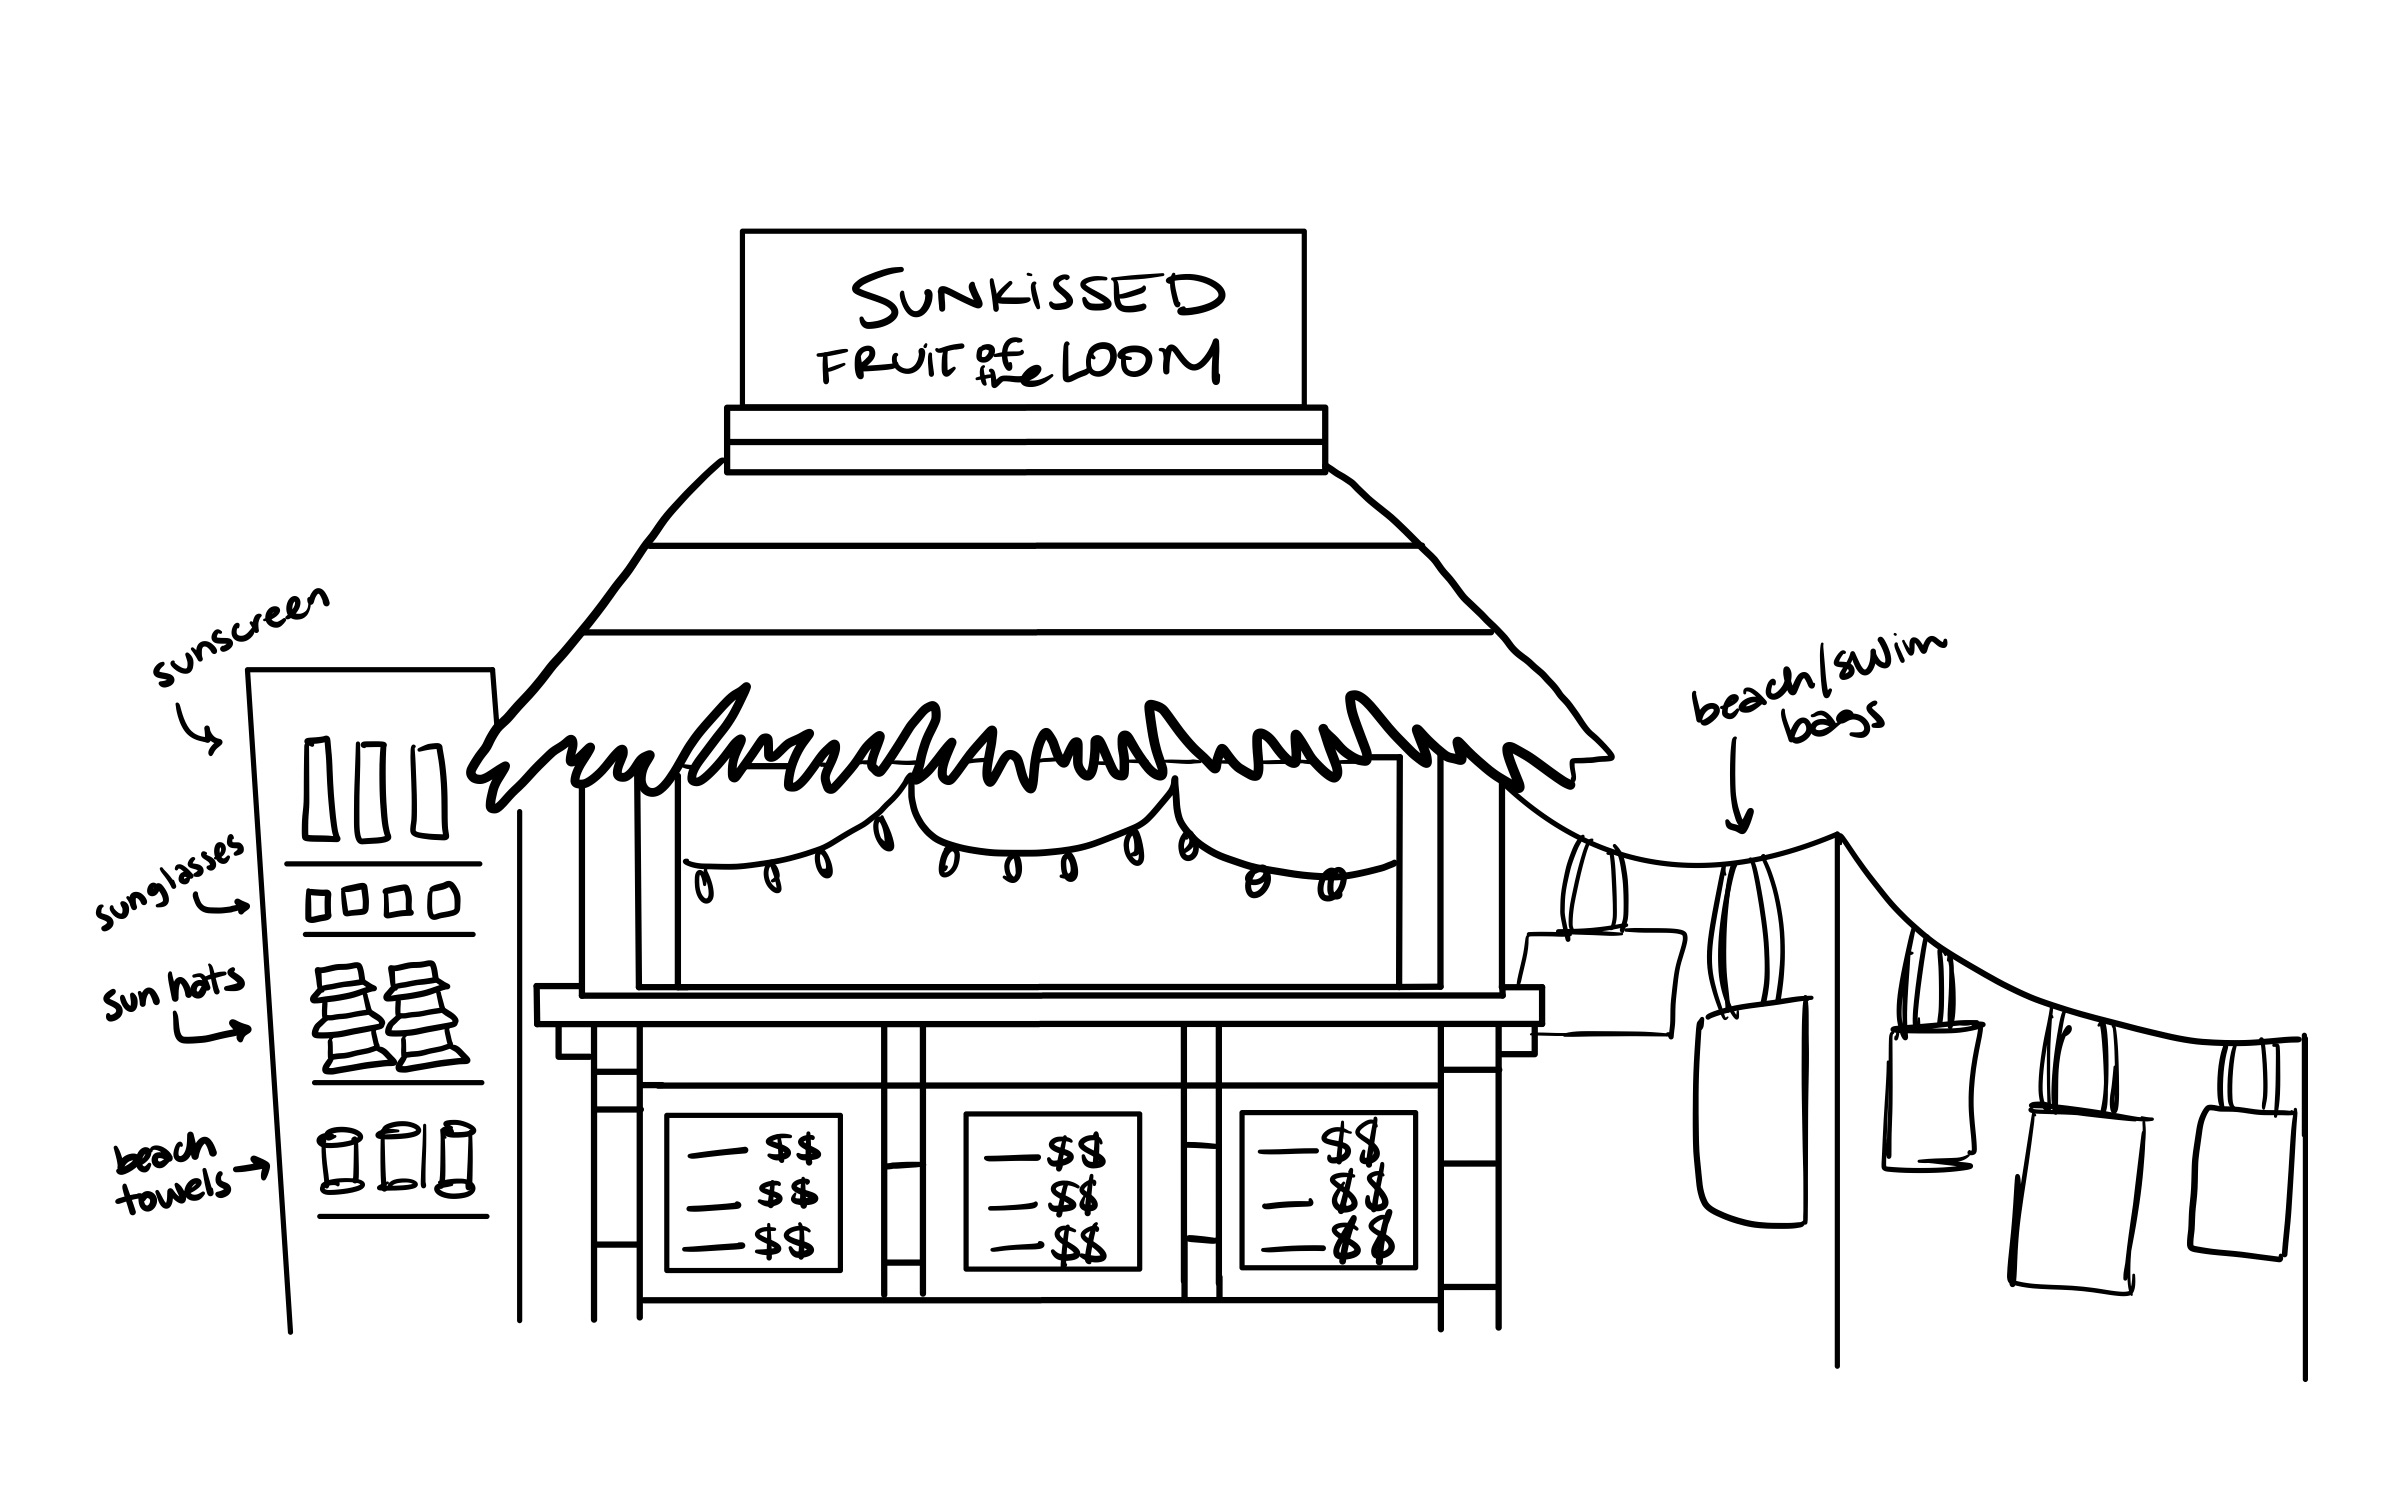 SUNKiSSED
FRUiT of the LOOM
sunscreen
sunglasses
sun hats
beach
towels
beach/swim
bags
— $$
— $$
— $$
— $$
— $$
— $$
— $$
— $$
— $$